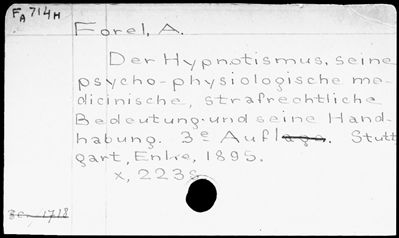 FA 714 H
Forel, A.
Der Hypnotismus, seine
psycho-physiologische me-
dicinische, strafrechtliche
Bedeutung und seine Hand-
habung. 3e Auflage. Stutt
gart, Enke, 1895.
x, 223 s